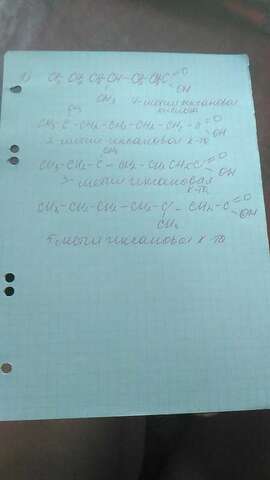 1) CH₃ CH₂ CH₂ CH - CH₂ CH₂ C = O
OH
CH₃ 4-метил гексановая
кислота
CH₃
CH₃ - C - CH₂ - CH₂ - CH₂ - CH₂ - C = O
OH
2-метил гексановая к-та
CH₃
CH₃ - CH₂ - C - CH₂ - CH₂ CH₂ C = O
OH
3-метил гексановая
к-та
CH₃ - CH₂ - CH₂ - CH₂ - C - CH₂ - C = O
OH
CH₃
5 метил гексановая к-та